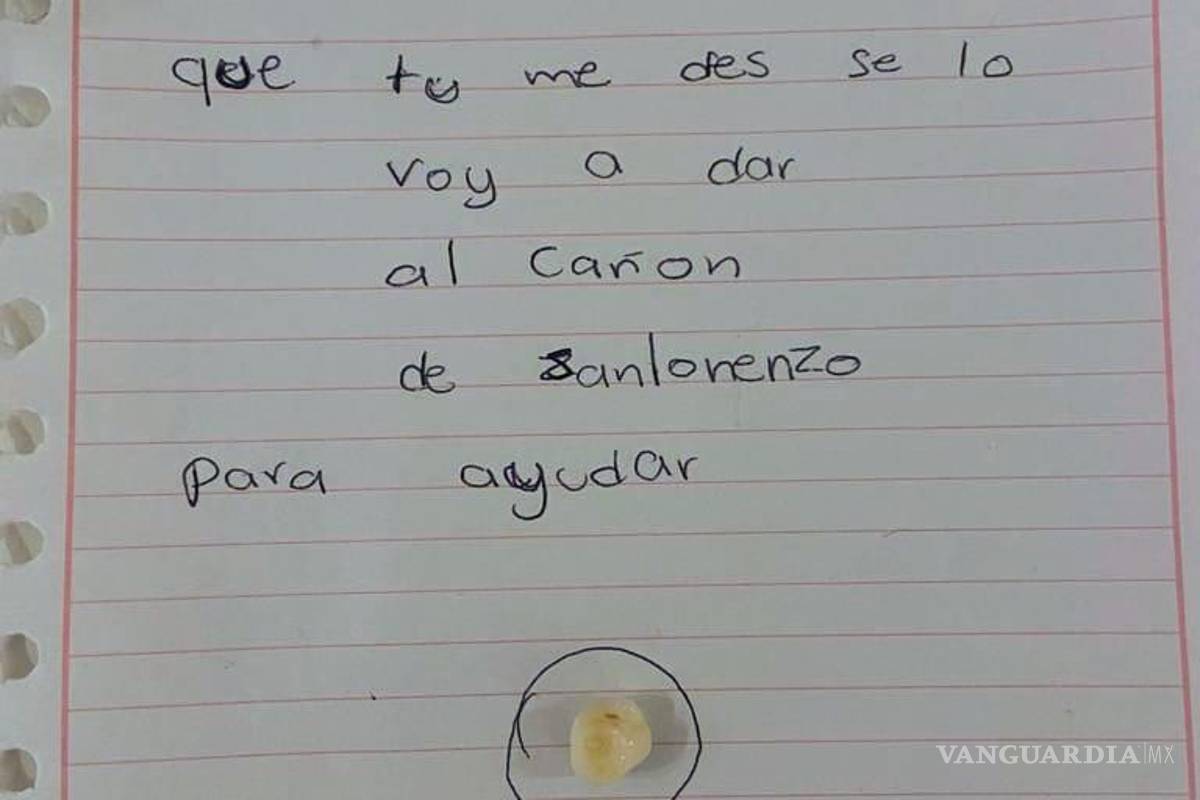 que tu me des se lo
voy a dar
al Cañon
de sanlorenzo
para ayudar
VANGUARDIA|MX